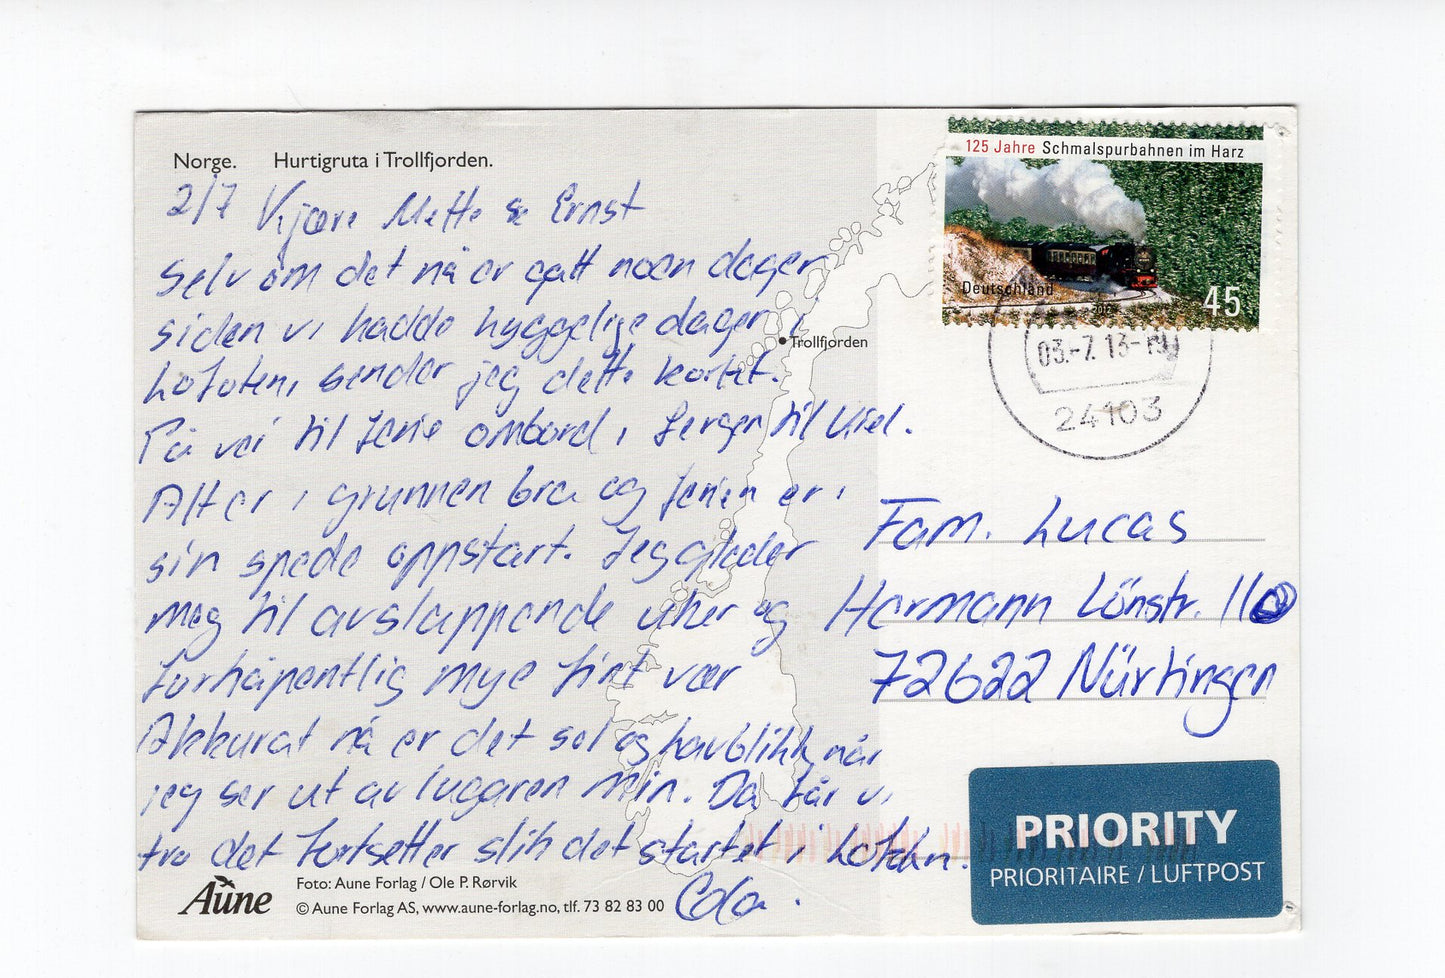 Norge. Hurtigruta i Trollfjorden.
2/7 Kjære Mette & Ernst
Selv om det nå er gått noen dager
siden vi hadde hyggelige dager i
Lofoten, sender jeg dette kortet.
På vei til ferie ombord, Bergen til Kiel.
Alt er i grunnen bra og ferien er i
sin spede oppstart. Jeg gleder
meg til avslappende uker og
forhåpentlig mye fint vær
Akkurat nå er det sol og havblikk, når
jeg ser ut av lugaren min. Da får vi
tro det fortsetter slik det startet i Lofoten.
Cola.
Trollfjorden
Aune
Foto: Aune Forlag / Ole P. Rørvik
© Aune Forlag AS, www.aune-forlag.no, tlf. 73 82 83 00
125 Jahre Schmalspurbahnen im Harz
Deutschland
2012
45
03.-7.13-19
24103
Fam. Lucas
Hermann Lönsstr. 110
72622 Nürtingen
PRIORITY
PRIORITAIRE / LUFTPOST